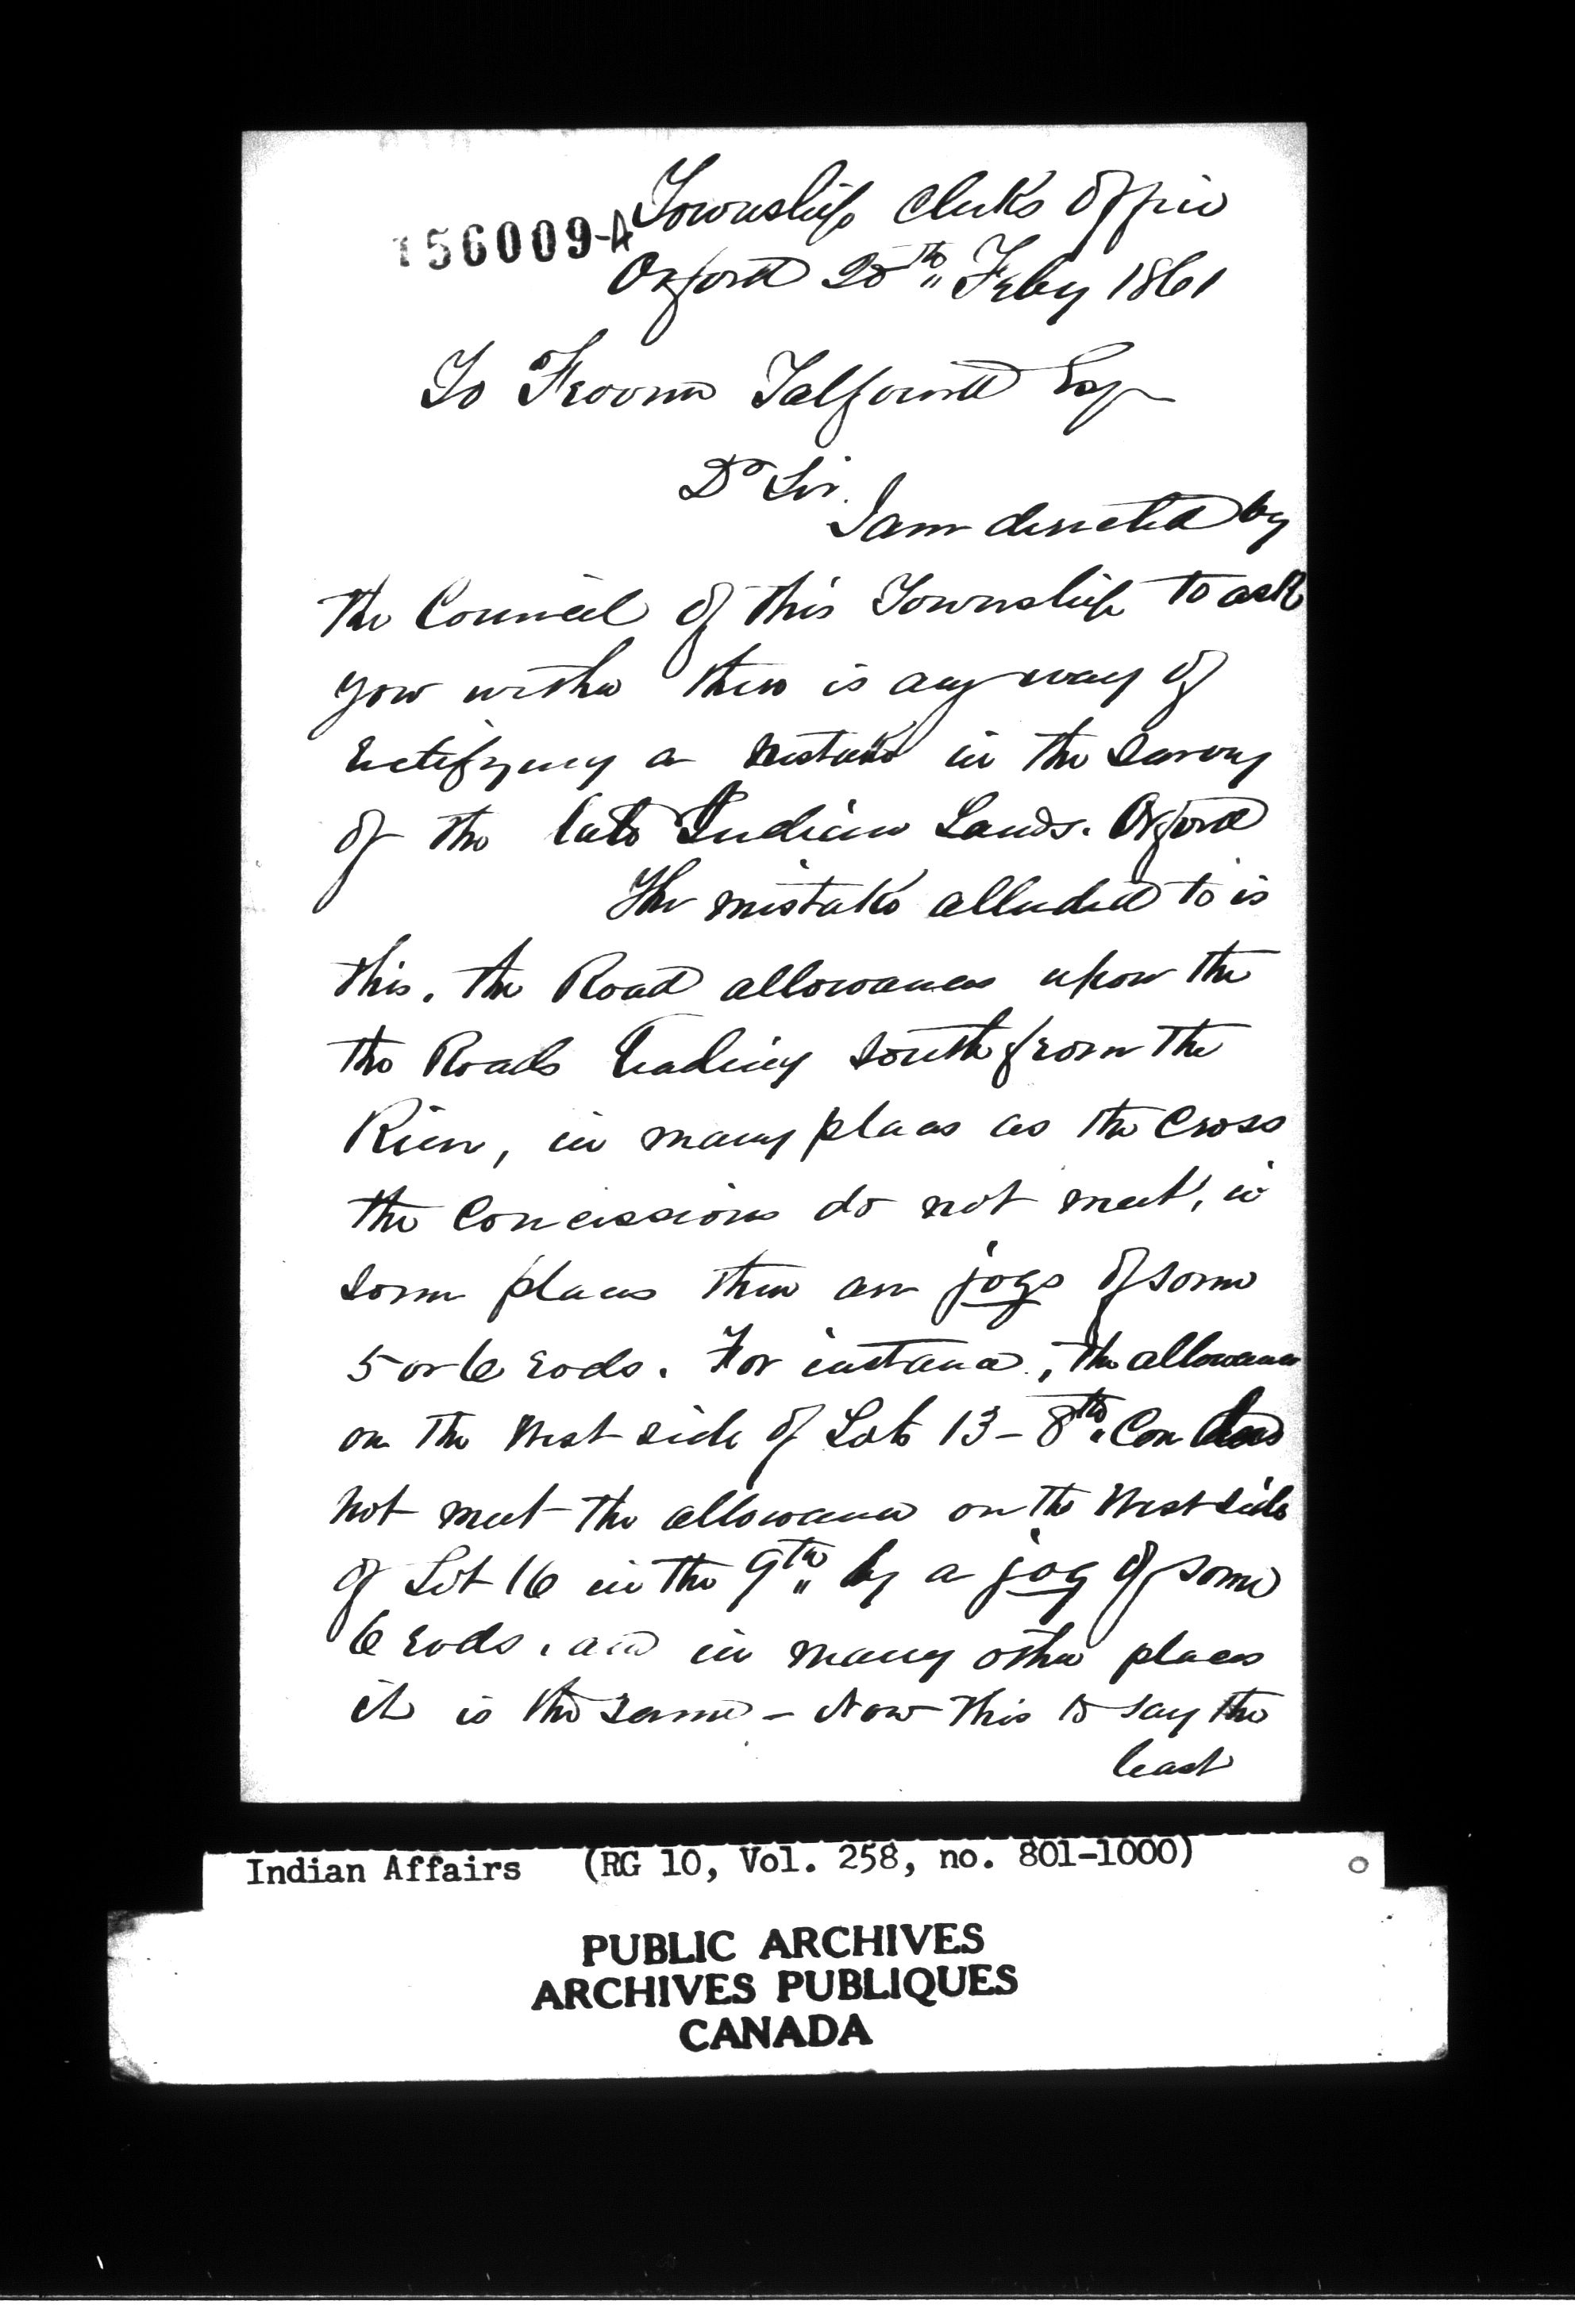 156009-A
Township Clerks Office
Orford 25th Feby 1861
To Froome Talfourd Esq
Dr Sir.
I am directed by
the Council of this Township to ask
you wether there is any way of
rectifying a mistake in the survey
of the late Indian Lands. Orford
The mistake alluded to is
this. the Road allowances upon the
the Roads leading south from the
River, in many places as the cross
the Concissions do not meet, in
some places there are jogs of some
5 or 6 rods. For instance, the allowance
on the West side of Lot 13 - 8th Con does
not meet the allowance on the West side
of Lot 16 in the 9th by a jog of some
6 rods. and in many other places
it is the same - Now this to say the
least
Indian Affairs (RG 10, Vol. 258, no. 801-1000)
PUBLIC ARCHIVES
ARCHIVES PUBLIQUES
CANADA